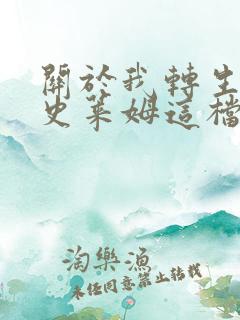 關於我轉生
史萊姆這檔
淘樂漁
未经同意禁止转载